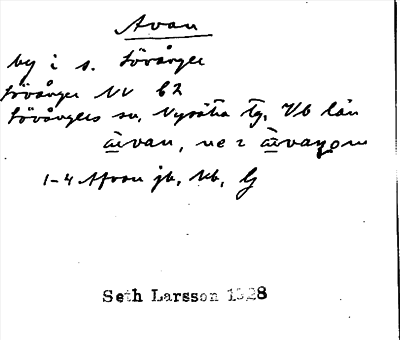 Avan
by i s. Lövånger
Lövånger NV b2
Lövångers sn, Nysätra tg, Vb län
àvan, ne z àvaŋom
1-4 Afvan jb, Mb, G
Seth Larsson 1928